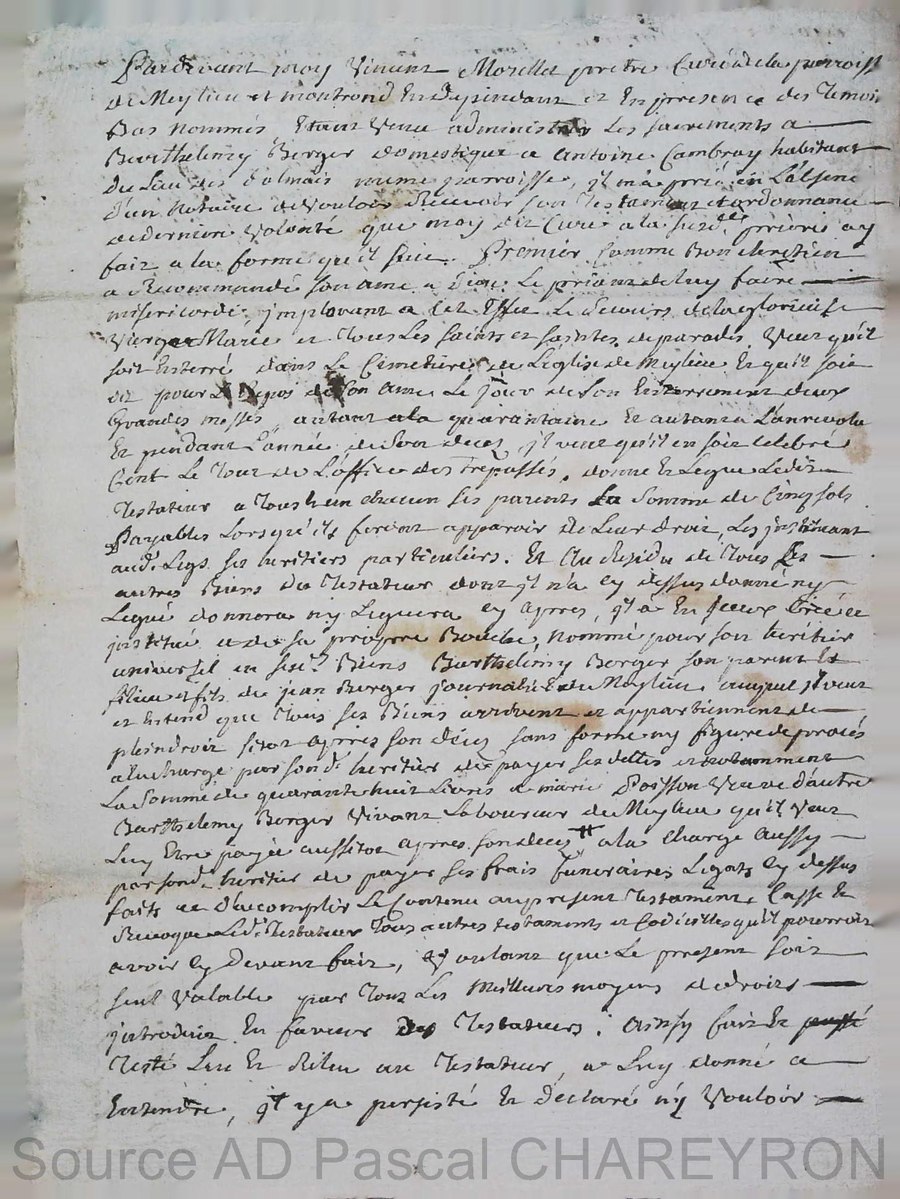 Pardevant moy Vincent Morellet pretre Curé de la parroisse
de Meylieu et montrond En dependant et En presence des Temoins
Bas nommés, Etant Venu administrer Les sacrements a
Barthelemy Berger domestique a Antoine Cambray habitant
du Lieu des d'almais meme parroisse, jl m'a prié en L'absence
d'un Notaire de Vouloir Recevoir son Testament et ordonnance
de derniere Volonté que moy dit Curé a la susd.e priere ay
fait a la forme qu'il suit. Premier Comme Bon chretien
a Recommandé son ame a Dieu Le priant de luy faire
misericorde, jmplorant a cet Effet Le secours de la glorieuse
Vierge Marie et Tous Les saints et saintes de paradis Veut qu'il
soit Enterré dans Le Cimetiere de L'eglise de Meylieu Et qu'il soit
dit pour Le Repos de son ame Le jour de son Enterrement deux
Grandes messes, autant a la quarantaine Et autant a L'anrevolu
Et pendant L'année de son deces, jl veut qu'il en soit Celebré
Cent Le Tout de L'office des Trepassés. donne Et Legue Ledit
Testateur a Tous Et un chacun ses parents La somme de Cinq sols
Payables Lorsqu'ils feront apparoir de Leur droit, Les jnstituant
aud. Legs ses heritiers particuliers. Et Au Residu de Tous Les
autres Biens du Testateur dont jl n'a cy dessus donné ny
Legué donnera ny Leguera cy apres, jl a En Iceux Créé et
jnstitué et de sa propre Bouche, nommé pour son heritier
universel en sesd. Biens Barthelemy Berger son parent Et
filleul fils de jean Berger journalier de Meylieu auquel jl veut
et Entend que Tous ses Biens arrivent et appartiennent de
plein droit sitot apres son déces sans forme ny figure de procés
a la charge par sond. heritier de payer ses dettes et notamment
La Somme de quarante huit Livres a marie Poisson Veuve d'autre
Barthelemy Berger Vivant Laboureur de Meylieu qu'il Veut
Luy Etre payée aussitot apres son deces a la charge Aussy
par sond. heritier de payer ses frais funeraires Legats cy dessus
faits et d'accomplir Le Contenu au present Testament. Casse Et
Revoque Led. Testateur Tous autres testaments et Codicilles qu'il pourroit
avoir cy Devant fait, Voulant que Le present soit
seul Valable par Tous Les Meilleurs moyens de droits
jntroduit En faveur des Testateurs. Ainsy fait Et passé
Testé Leu Et Releu au Testateur, a Luy donné a
Entendre, qu'il y a persisté Et declaré n'y Vouloir
Source AD Pascal CHAREYRON